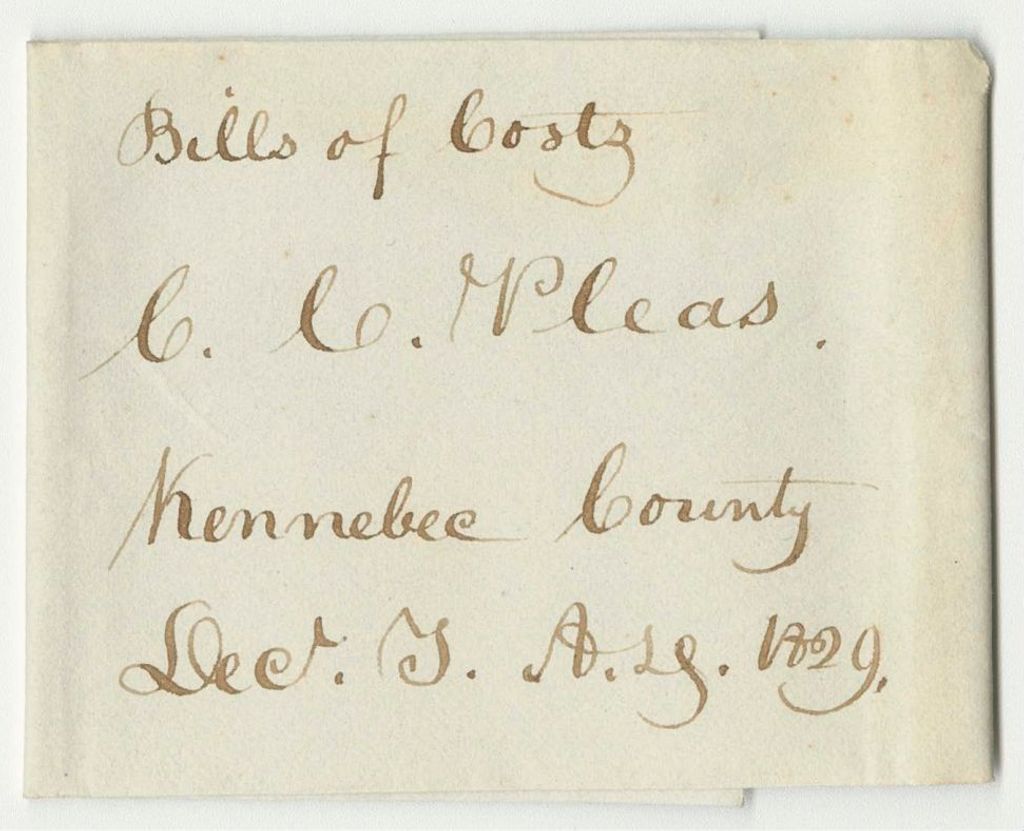 Bills of Costs
C. C. Pleas.
Kennebec County
Decr. T. A. D. 1829.